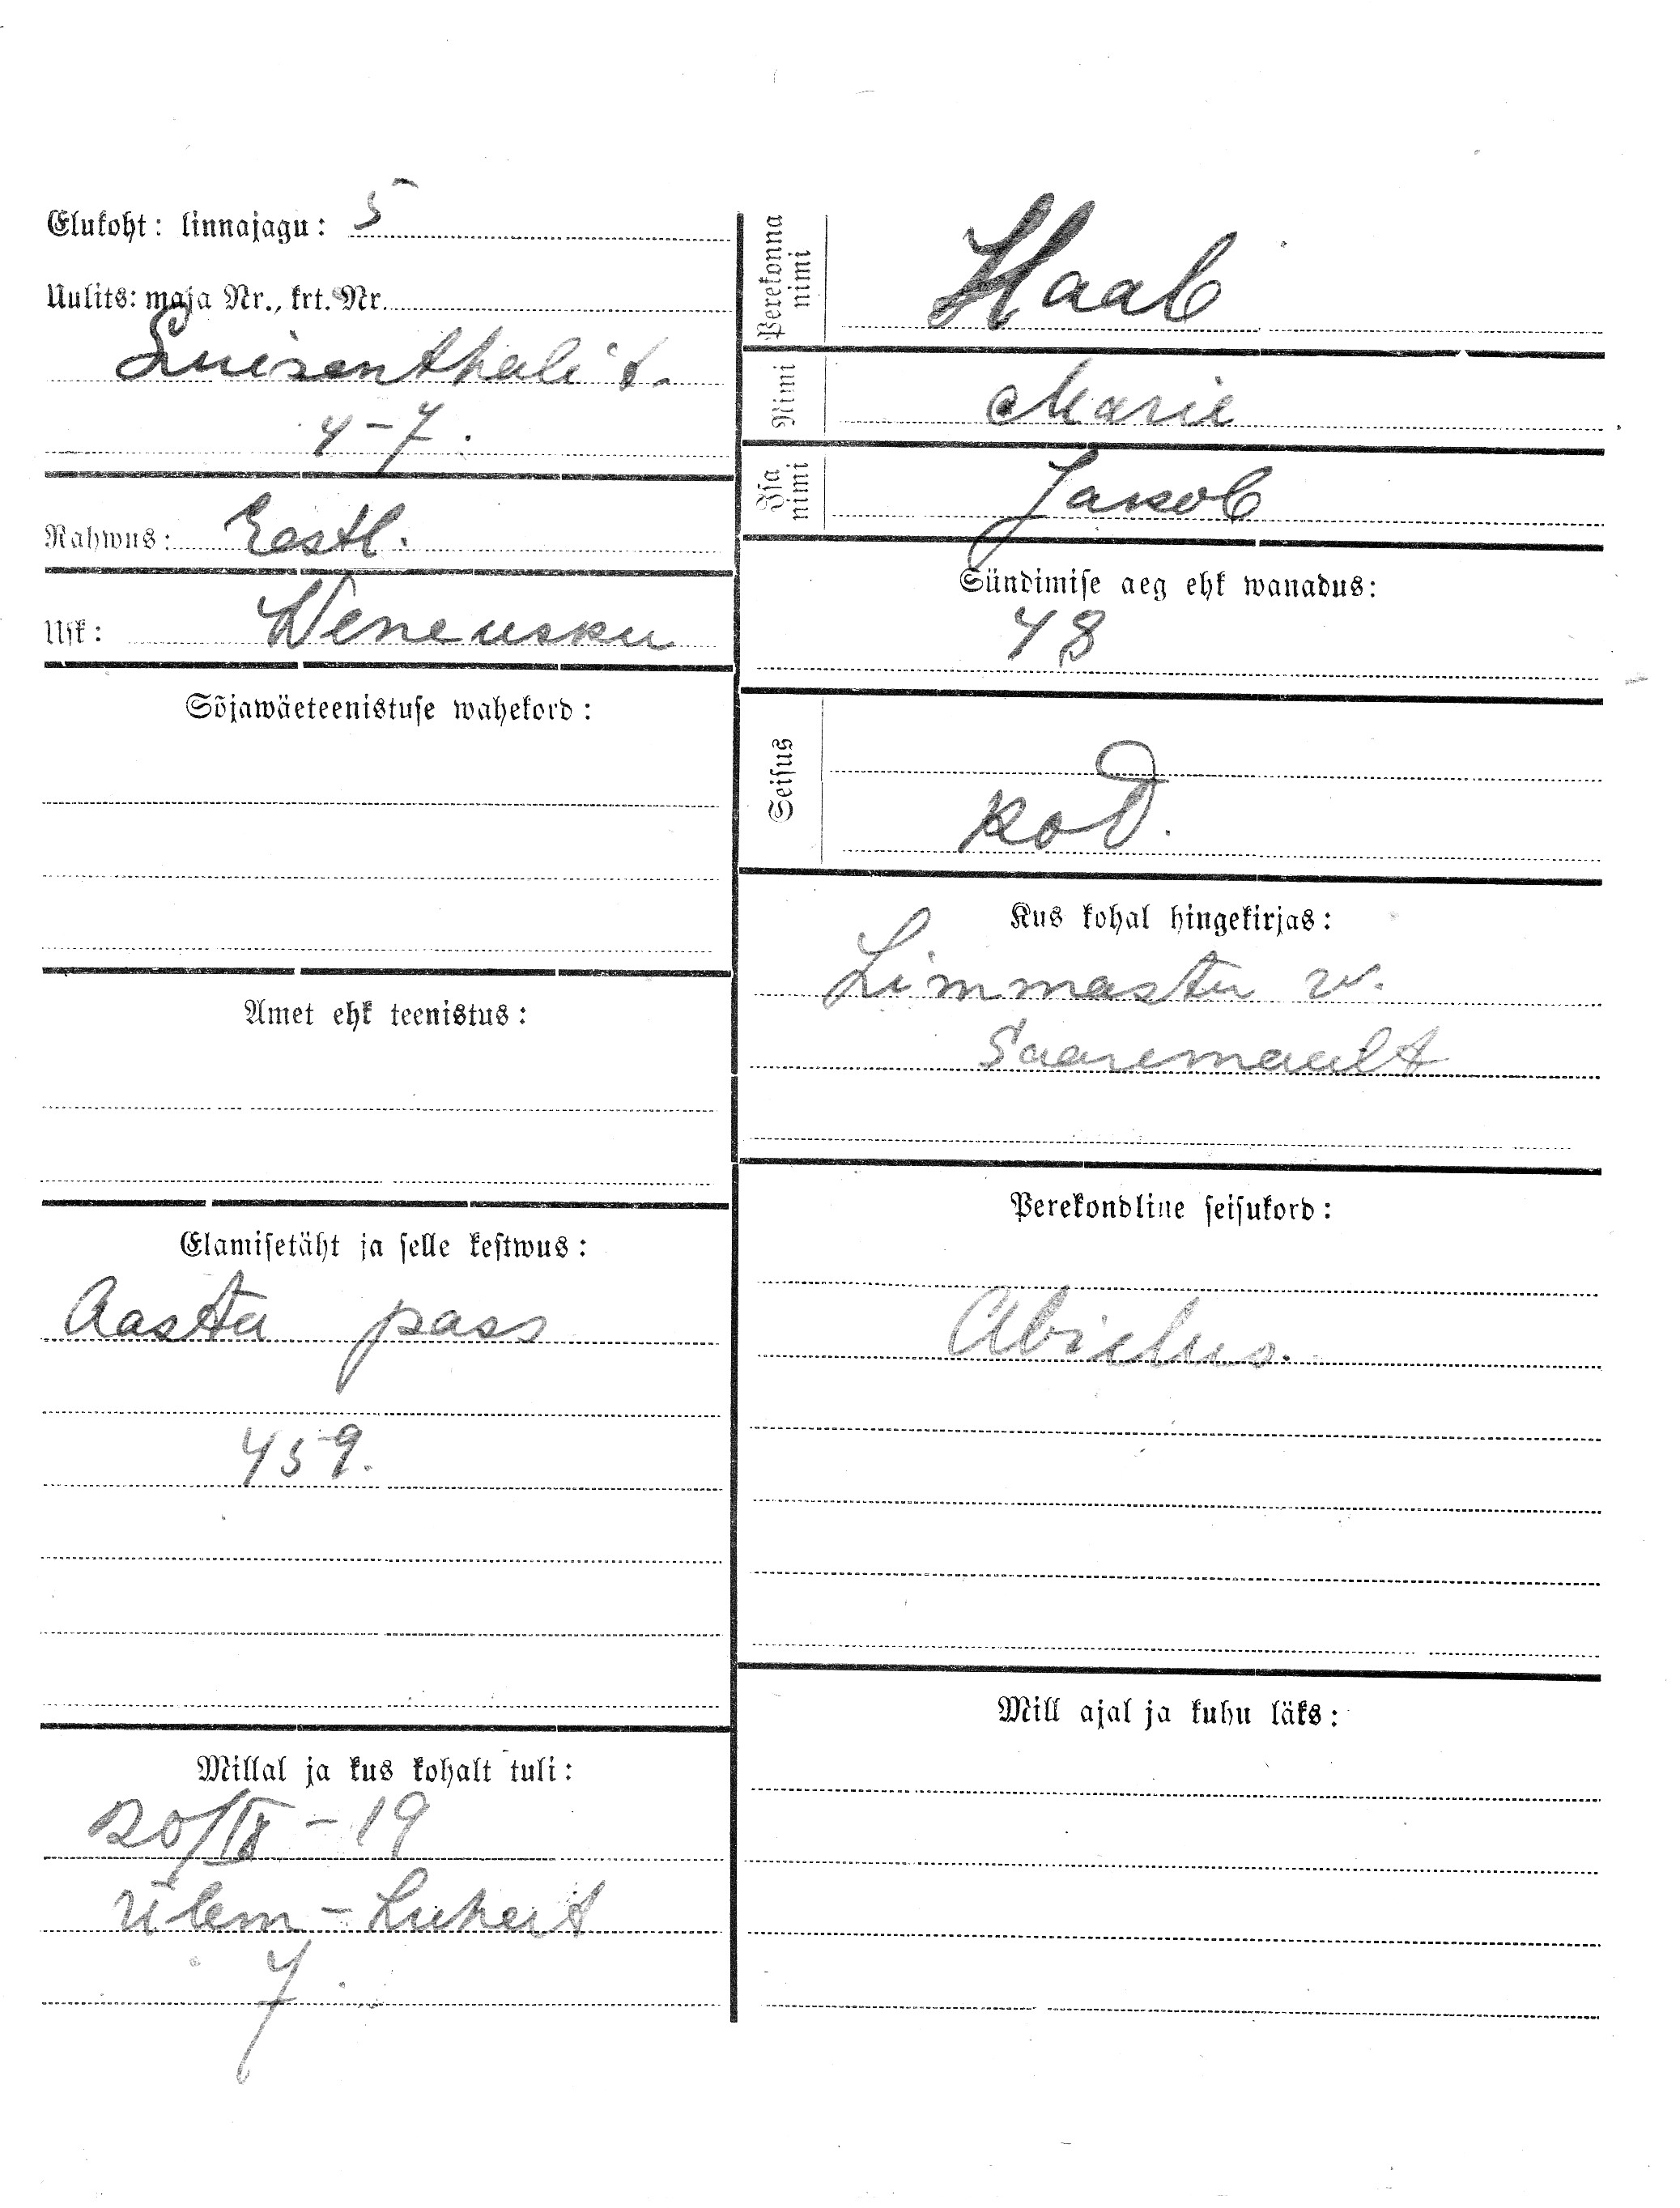 Elukoht: linnajagu: 5
Uulits: maja Nr., krt. Nr.
Luisenthali t.
4-7.
Rahwus: Eestl.
Usk: Weneusku
Sõjawäeteenistuse wahekord:
Amet ehk teenistus:
Elamisetäht ja selle kestwus:
Aasta pass
459.
Millal ja kus kohalt tuli:
20/IX - 19
Ülem-
7
Perekonna
nimi
Haab
Nimi Marie
Isa
nimi
Jakob
Sündimise aeg ehk wanadus:
48
Seisus
kod.
Kus kohal hingekirjas:
Limmastu w.
Saaremaalt
Perekondline seisukord:
Abielus.
Mill ajal ja kuhu läks: